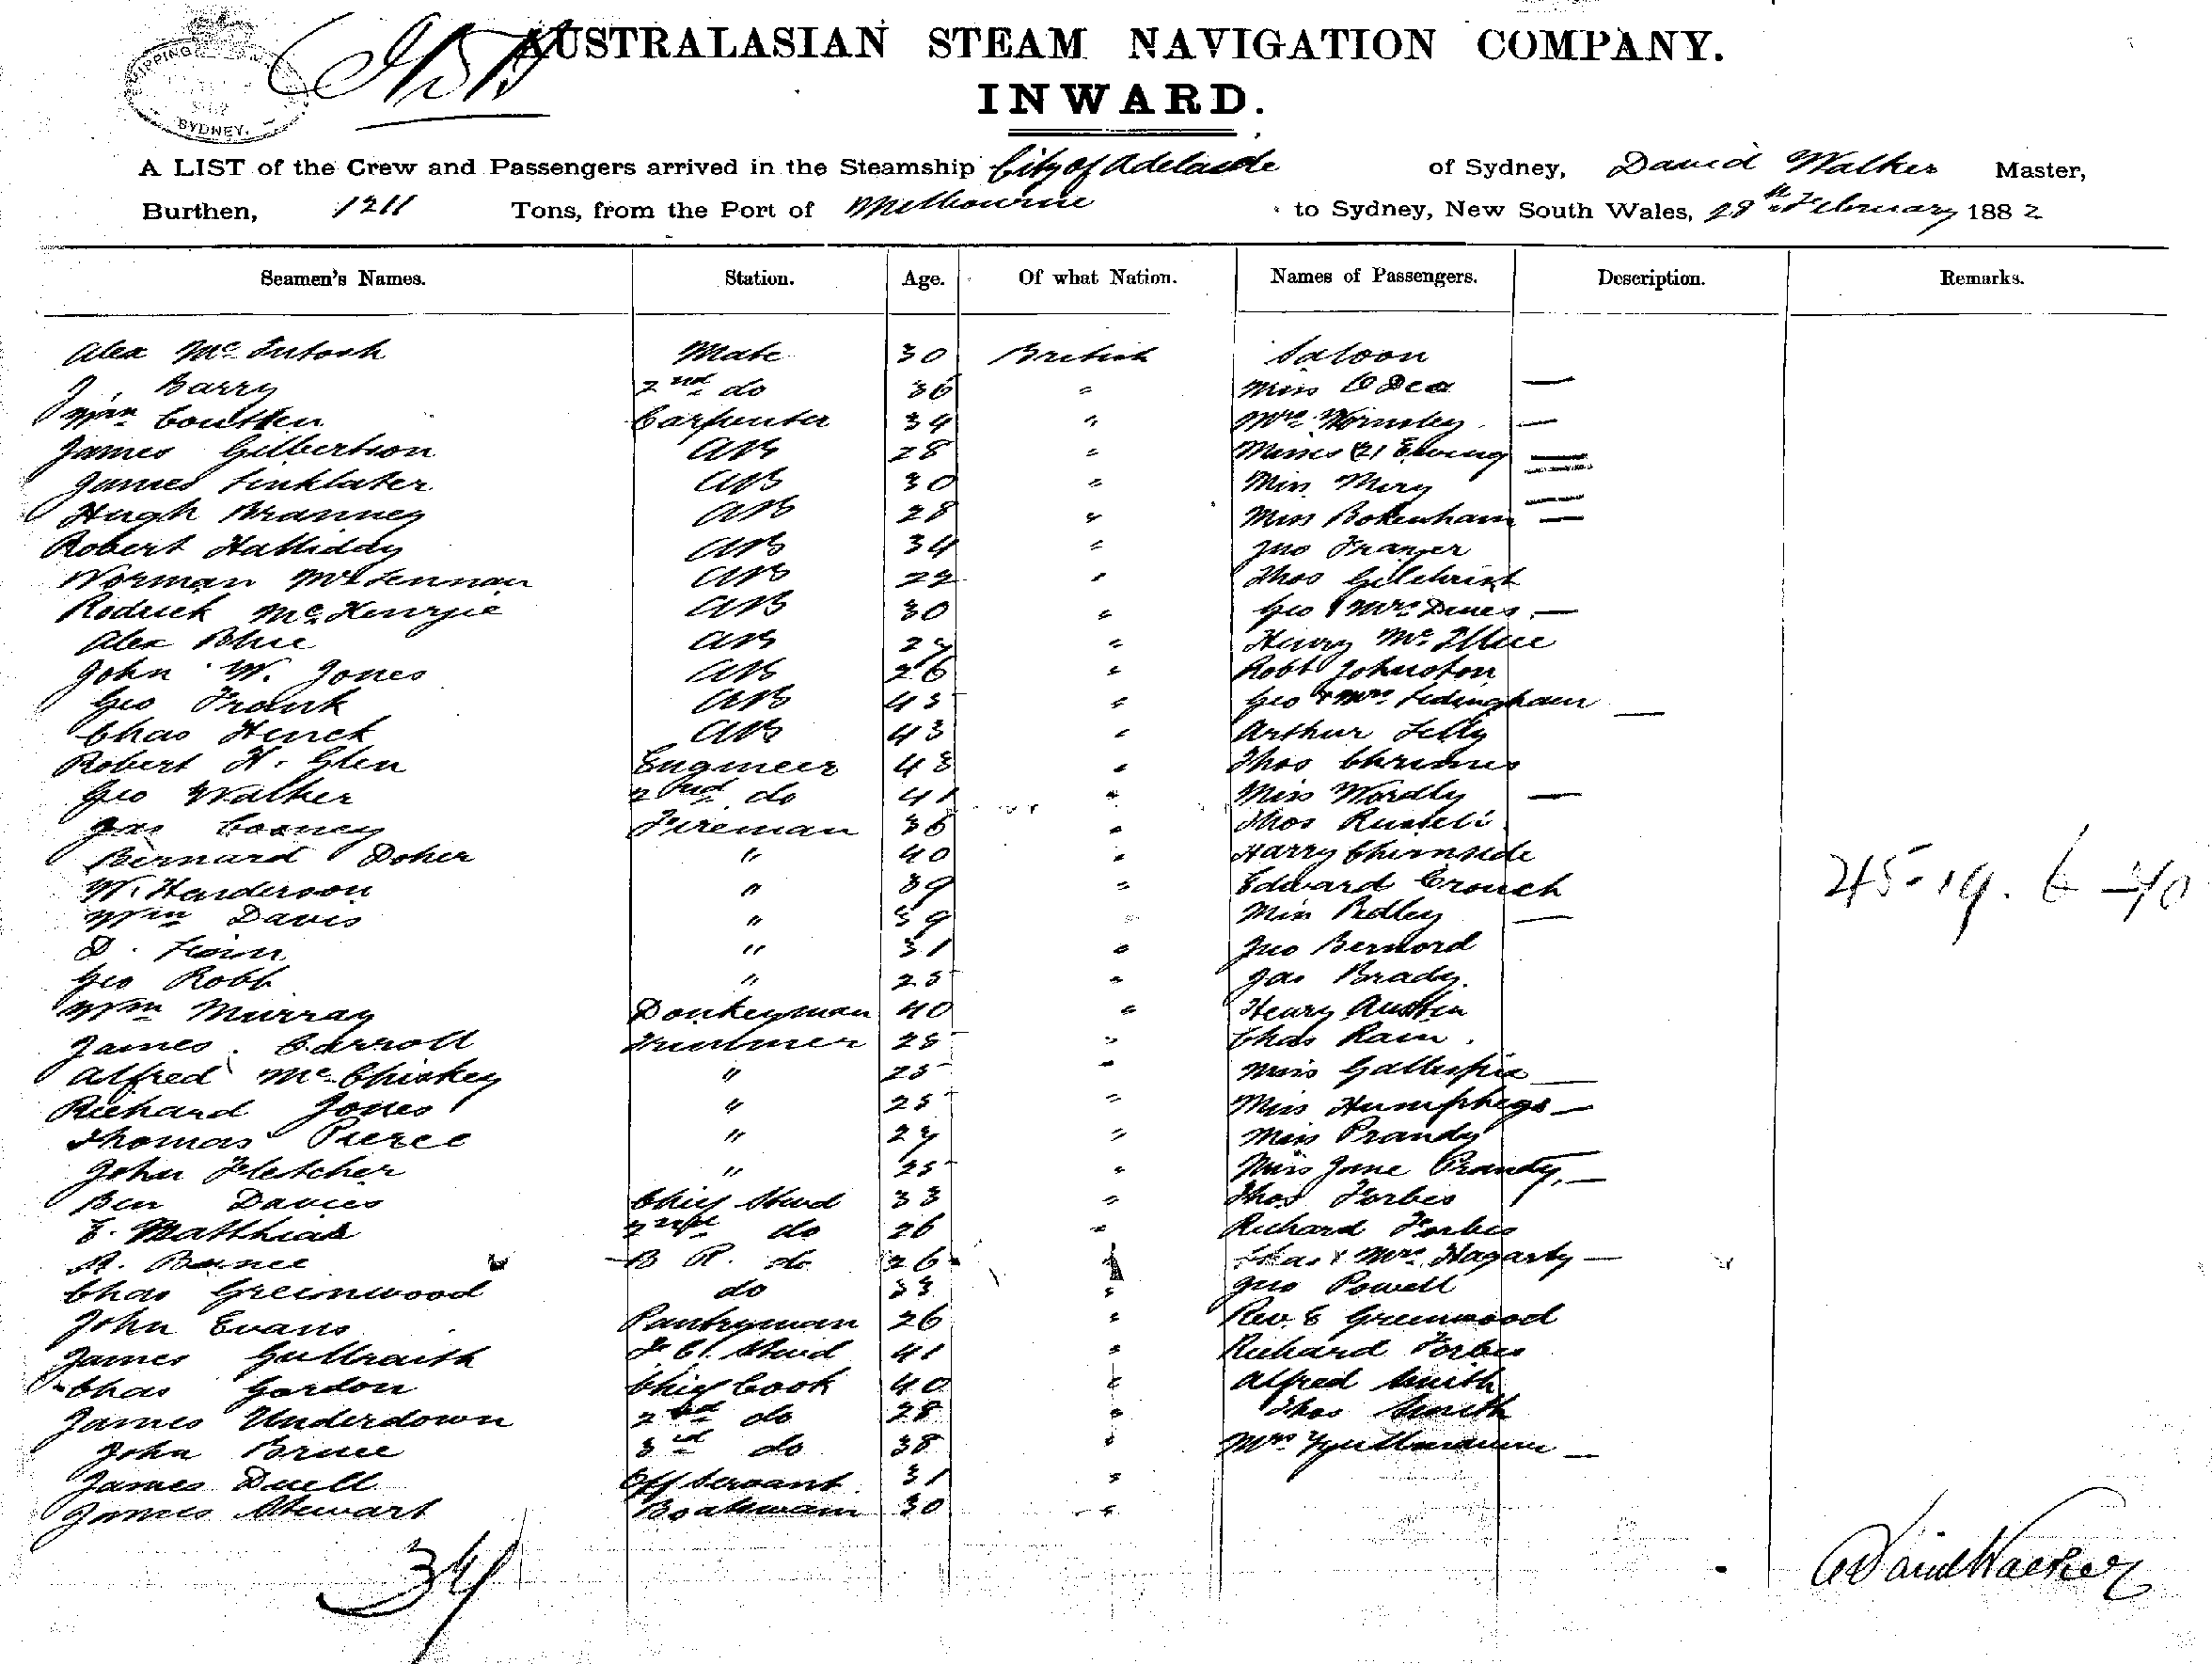 SHIPPING
SYDNEY.
AUSTRALASIAN STEAM NAVIGATION COMPANY.
INWARD.
A LIST of the Crew and Passengers arrived in the Steamship City of Adelaide of Sydney, David Walker Master,
Burthen, 1211 Tons, from the Port of Melbourne to Sydney, New South Wales, 28th February 1882
Seamen's Names. Station. Age. Of what Nation. Names of Passengers. Description. Remarks.
Alex Mc Intosh Mate 30 British Saloon
J. Barry 2nd do 36 " Miss O Dea —
Wm Coutten Carpenter 34 " Mrs Wormsley —
James Gilbertson AB 28 " Misses (2) Ewing —
James Linklater AB 30 " Miss Mory
Hugh Branney AB 28 " Miss Bokenham —
Robert Halliday AB 34 " Jno Frazer
Norman McLennan AB 22 " Thos Gilchrist
Rodrick McKenzie AB 30 " Geo & Mrs Dines —
Alex Blue AB 27 " Henry Mc Illue
John W. Jones AB 26 " Robt Johnston
Geo Frank AB 45 " Geo & Mrs Ledingham —
Chas Henck AB 43 " Arthur Lelly
Robert H. Glen Engineer 43 " Thos Chrismes
Geo Walker 2nd do 41 " Miss Wordly —
Jas Cooney Fireman 36 " Thos Russell
Bernard Doher " 40 " Harry Chirnside
W. Harderson " 39 " Edward Crouch
Wm Davis " 39 " Miss Pedley —
D. " 31 " Jno Bernord
Geo Robb " 25 " Jas Brady.
Wm Murray Donkeyman 40 " Henry Austin
James Carroll Trimmer 25 " Chas Rain.
Alfred McChiskey " 25 " Miss Gallespie —
Richard Jones " 25 " Miss Humpheys —
Thomas Pierce " 27 " Miss Prandy
John Fletcher " 25 " Miss Jane Prandy, —
Ben Davies Chief Stwd 33 " Thos Forbes
E. Matthias 2nd do 26 " Richard Forbes
A. Bunce B R. do 26 " Chas & Mrs Hagarty —
Chas Greenwood do 33 " Jno Powell
John Evans Pantryman 26 " Rev. E Greenwood
James Gulbraith F Cl. Stwd 41 " Richard Forbes
Chas Gordon Chief Cook 40 " Alfred Smith
James Underdown 2nd do 28 " Thos Smith
John Bruce 3rd do 38 " Mrs —
James Duell Off Servant 31 "
James Stewart Boatswain 30 "
34
David Walker